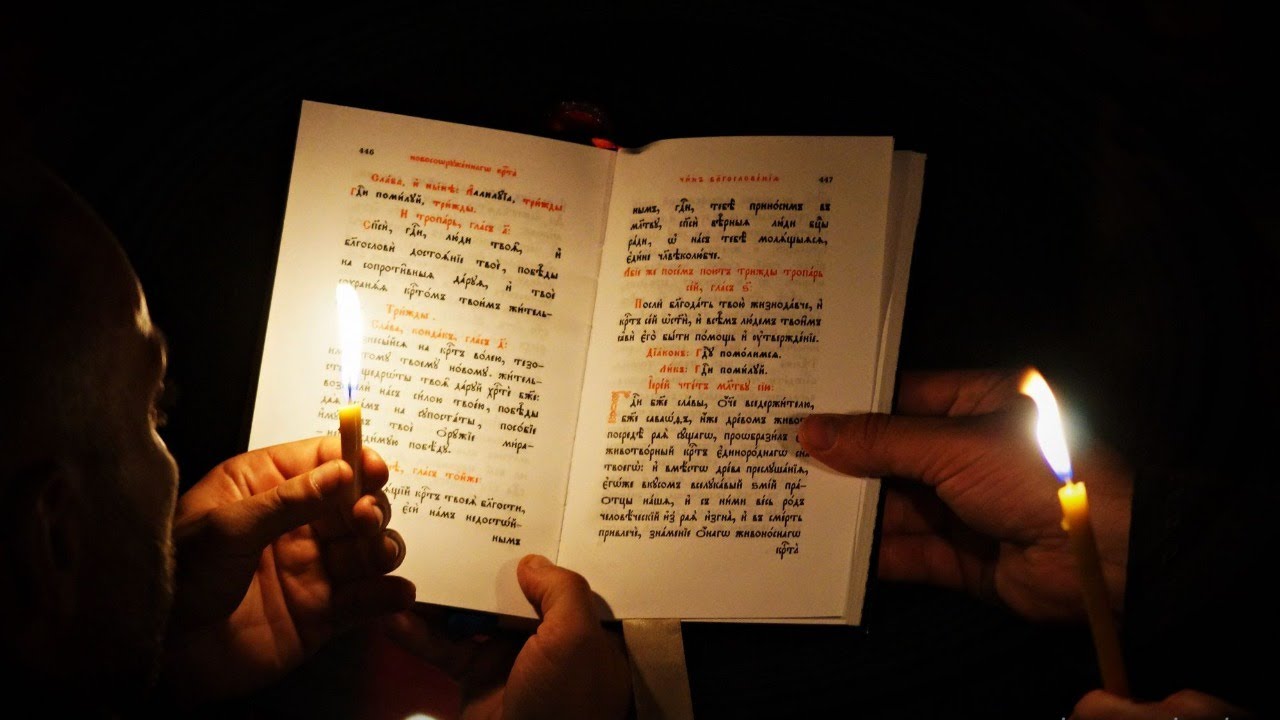 446
новосооруженнагѡ крⷭ҇та̀
Сла́ва, и҆ ны́нѣ: А҆ллилꙋ́їа, три́жды.
Гдⷭ҇и поми́лꙋй, три́жды.
И҆ тропа́рь, гла́съ а҃:
Сп҃сѝ, гдⷭ҇и, лю́ди твоѧ҄, и҆
бл҃гословѝ достоѧ́нїе твоѐ, побѣ́ды
на сопроти́вныѧ да́рꙋѧ, и҆ твоѐ
сохранѧ́ѧ крⷭ҇то́мъ твои́мъ жи́тель-
Три́жды.
Сла́ва, конда́къ, гла́съ д҃:
на крⷭ҇тъ во́лею, тезо-
твоемꙋ̀ но́вомꙋ жи́тель-
твоѧ҄ да́рꙋй хрⷭ҇тѐ бж҃е:
на́съ си́лою твое́ю, побѣ́ды
на сꙋпоста́ты, посо́бїе
твоѐ ѻ҆рꙋ́жїе ми́ра-
побѣ́дꙋ.
гла́съ то́йже:
крⷭ҇тъ твоеѧ̀ бл҃гости,
є҆сѝ на́мъ недосто́й-
нымъ
чи́нъ бл҃гослове́нїѧ
447
нымъ, гдⷭ҇и, тебѣ̀ прино́симъ въ
мл҃твꙋ, сп҃сѝ вѣ҄рныѧ лю́ди бц҃ы
ра́ди, ѡ҆ на́съ тебѣ̀ молѧ́щыѧсѧ,
є҆ди́не чл҃вѣколю́бче.
А҆́бїе же посе́мъ пою́тъ три́жды тропа́рь
се́й, гла́съ ѕ҃:
Послѝ бл҃года́ть твою̀ жизнода́вче, и҆
крⷭ҇тъ се́й ѡ҆ст҃ѝ, и҆ всѣ҄мъ лю́демъ твои҄мъ
ꙗ҆вѝ є҆го̀ бы́ти по́мощь и҆ ᲂу҆твержде́нїе.
Дїа́конъ: Гдⷭ҇ꙋ помо́лимсѧ.
Ли́къ: Гдⷭ҇и поми́лꙋй.
І҆ере́й чте́тъ мл҃твꙋ сїю̀:
Гдⷭ҇и бж҃е сла́вы, ѻ҆́ч҃е вседержи́телю,
бж҃е саваѡ́ѳъ, и҆́же дре́вомъ
посредѣ̀ раѧ̀ сꙋ́щагѡ, проѡбрази́лъ є҆сѝ
животво́рный крⷭ҇тъ є҆диноро́днагѡ
твоегѡ̀: и҆ вмѣ́стѡ дре́ва преслꙋша́нїѧ,
є҆гѡ́же вкꙋ́сомъ вселꙋка́вый ѕмі́й пра-
ѻтцы̀ на́шѧ, и҆ съ ни́ми ве́сь ро́дъ
человѣ́ческїй и҆з̾ раѧ̀ и҆згна̀, и҆ въ сме́рть
привлечѐ, зна́менїе ѻ҆́нагѡ живоно́снагѡ
крⷭ҇та̀